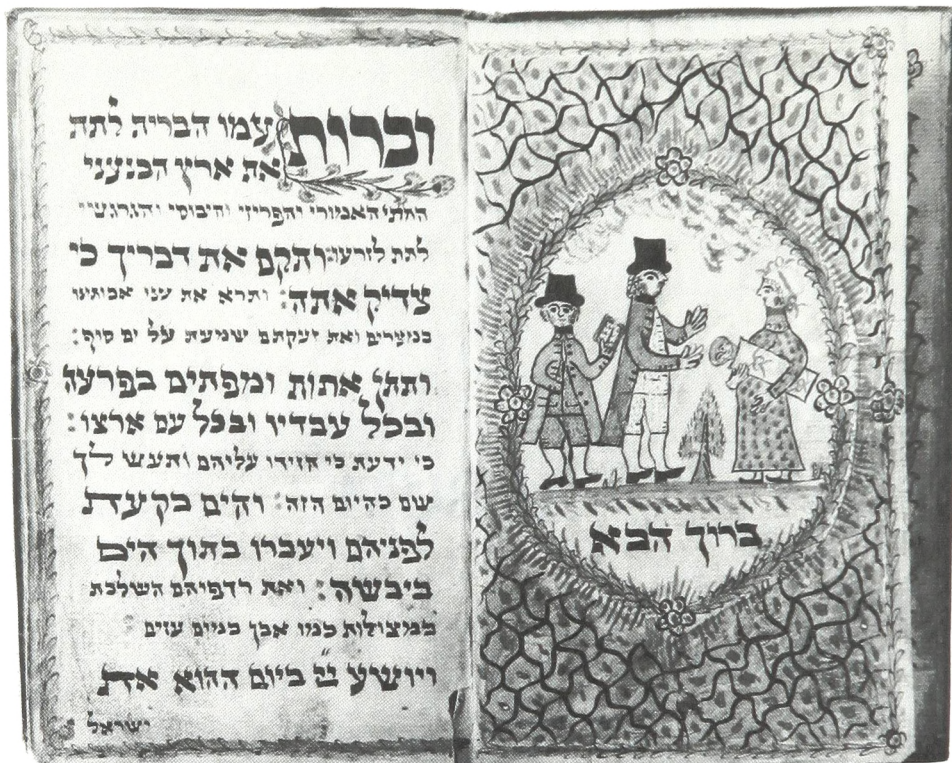 ברוך הבא
וכרות עמו הברית לתת
את ארץ הכנעני
החתי האמורי והפריזי והיבוסי והגרגשי
לתת לזרעו: ותקם את דבריך כי
צדיק אתה: ותרא את עני אבותינו
במצרים ואת זעקתם שמעת על ים סוף:
ותתן אתות ומפתים בפרעה
ובכל עבדיו ובכל עם ארצו:
כי ידעת כי הזידו עליהם ותעש לך
שם כהיום הזה: והים בקעת
לפניהם ויעברו בתוך הים
ביבשה: ואת רדפיהם השלכת
במצולות כמו אבן במים עזים
ויושע ײ ביום ההוא את
ישראל